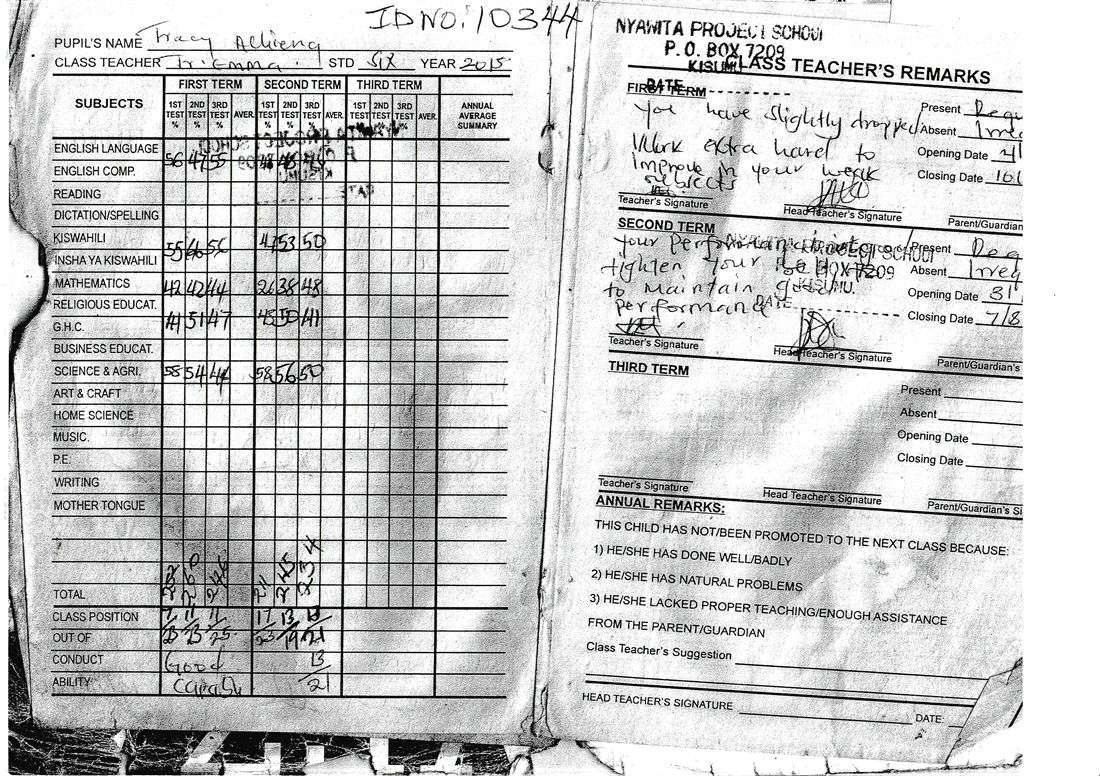 ID NO: 10344
PUPIL'S NAME Tracy Achieng
CLASS TEACHER Tr. Emma. STD SIX YEAR 2015
SUBJECTS FIRST TERM SECOND TERM THIRD TERM ANNUAL AVERAGE SUMMARY
1ST TEST % 2ND TEST % 3RD TEST % AVER. 1ST TEST % 2ND TEST % 3RD TEST % AVER. 1ST TEST % 2ND TEST % 3RD TEST % AVER.
ENGLISH LANGUAGE
56 47 55
ENGLISH COMP.
READING
DICTATION/SPELLING
KISWAHILI
55 66 56 47 53 50
INSHA YA KISWAHILI
MATHEMATICS 42 42 44 26 38 48
RELIGIOUS EDUCAT.
G.H.C. 41 51 47 45 50 41
BUSINESS EDUCAT.
SCIENCE & AGRI. 58 54 44 58 56 50
ART & CRAFT
HOME SCIENCE
MUSIC.
P.E.
WRITING
MOTHER TONGUE
TOTAL 252 260 246 245 234
CLASS POSITION 7 11 11 17 13 13
OUT OF 25 25 25 23 19 21
CONDUCT Good 13
ABILITY 21
NYAWITA PROJECT SCHOOL
P. O. BOX 7209
KISUMU
CLASS TEACHER'S REMARKS
DATE
FIRST TERM
You have slightly dropped
Work extra hard to
improve in your weak
subjects
Present
Absent
Opening Date
Closing Date
Teacher's Signature Head Teacher's Signature Parent/Guardian
SECOND TERM
Your performance
tighten your
to maintain good
performance
NYAWITA PROJECT SCHOOL
P. O. BOX 7209
KISUMU.
DATE
Present
Absent
Opening Date 31
Closing Date 7/8
Teacher's Signature Head Teacher's Signature Parent/Guardian's
THIRD TERM
Present
Absent
Opening Date
Closing Date
Teacher's Signature Head Teacher's Signature Parent/Guardian's Si
ANNUAL REMARKS:
THIS CHILD HAS NOT/BEEN PROMOTED TO THE NEXT CLASS BECAUSE:
1) HE/SHE HAS DONE WELL/BADLY
2) HE/SHE HAS NATURAL PROBLEMS
3) HE/SHE LACKED PROPER TEACHING/ENOUGH ASSISTANCE
FROM THE PARENT/GUARDIAN
Class Teacher's Suggestion
HEAD TEACHER'S SIGNATURE DATE: